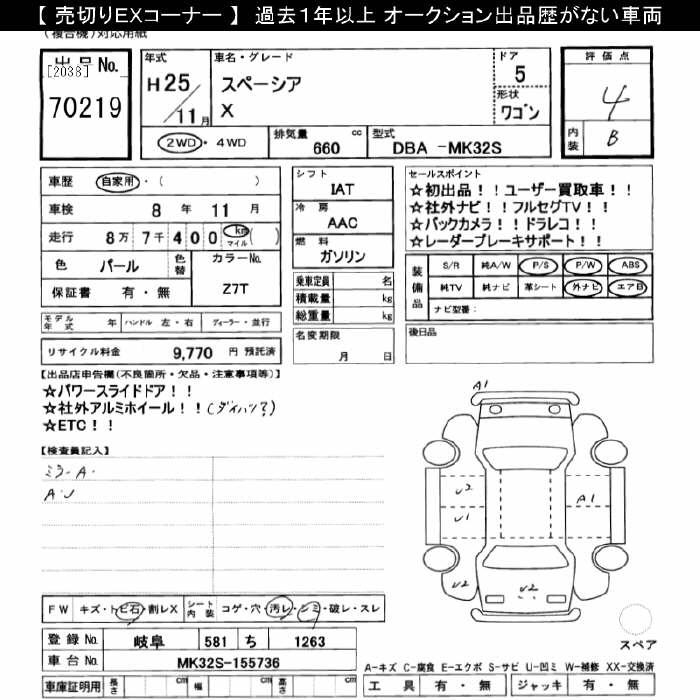 【 売切りEXコーナー 】 過去１年以上 オークション出品歴がない車両
(複合機)対応用紙
出品No.
[2038]
70219
年式
H25
/11月
車名・グレード
スペーシア
X
ドア
5
形状
ワゴン
評価点
4
内装
B
2WD・4WD
排気量
660 cc
型式
DBA -MK32S
車歴 自家用・( )
車検 8 年 11 月
走行 8万 7千 4 0 0 km マイル ( )
色 パール 色替
カラーNo.
Z7T
保証書 有・無
シフト
IAT
冷房
AAC
燃料
ガソリン
乗車定員 名
積載量 kg
総重量 kg
セールスポイント
☆初出品！！ユーザー買取車！！
☆社外ナビ！！フルセグTV！！
☆バックカメラ！！ドラレコ！！
☆レーダーブレーキサポート！！
装備品
S/R 純A/W P/S P/W ABS
純TV 純ナビ 革シート 外ナビ エアB
ナビ型番:
モデル年式 年 ハンドル 左・右 ディーラー・並行
名変期限
月 日
後日品
リサイクル料金 9,770 円 預託済
【出品店申告欄(不良箇所・欠品・注意事項等)】
☆パワースライドドア！！
☆社外アルミホイール！！(ダイハツ?)
☆ETC！！
【検査員記入】
ミラーA.
A.U
A1
U2
U1
A1
U2
U2
スペア
FW キズ・トビ石・割レX シート内装 コゲ・穴・汚レ・シミ・破レ・スレ
登録No. 岐阜 581 ち 1263
車台No. MK32S-155736
車庫証明用 長さ cm 幅 cm 高さ cm
A-キズ C-腐食 E-エクボ S-サビ U-凹ミ W-補修 XX-交換済
工具 有・無 ジャッキ 有・無